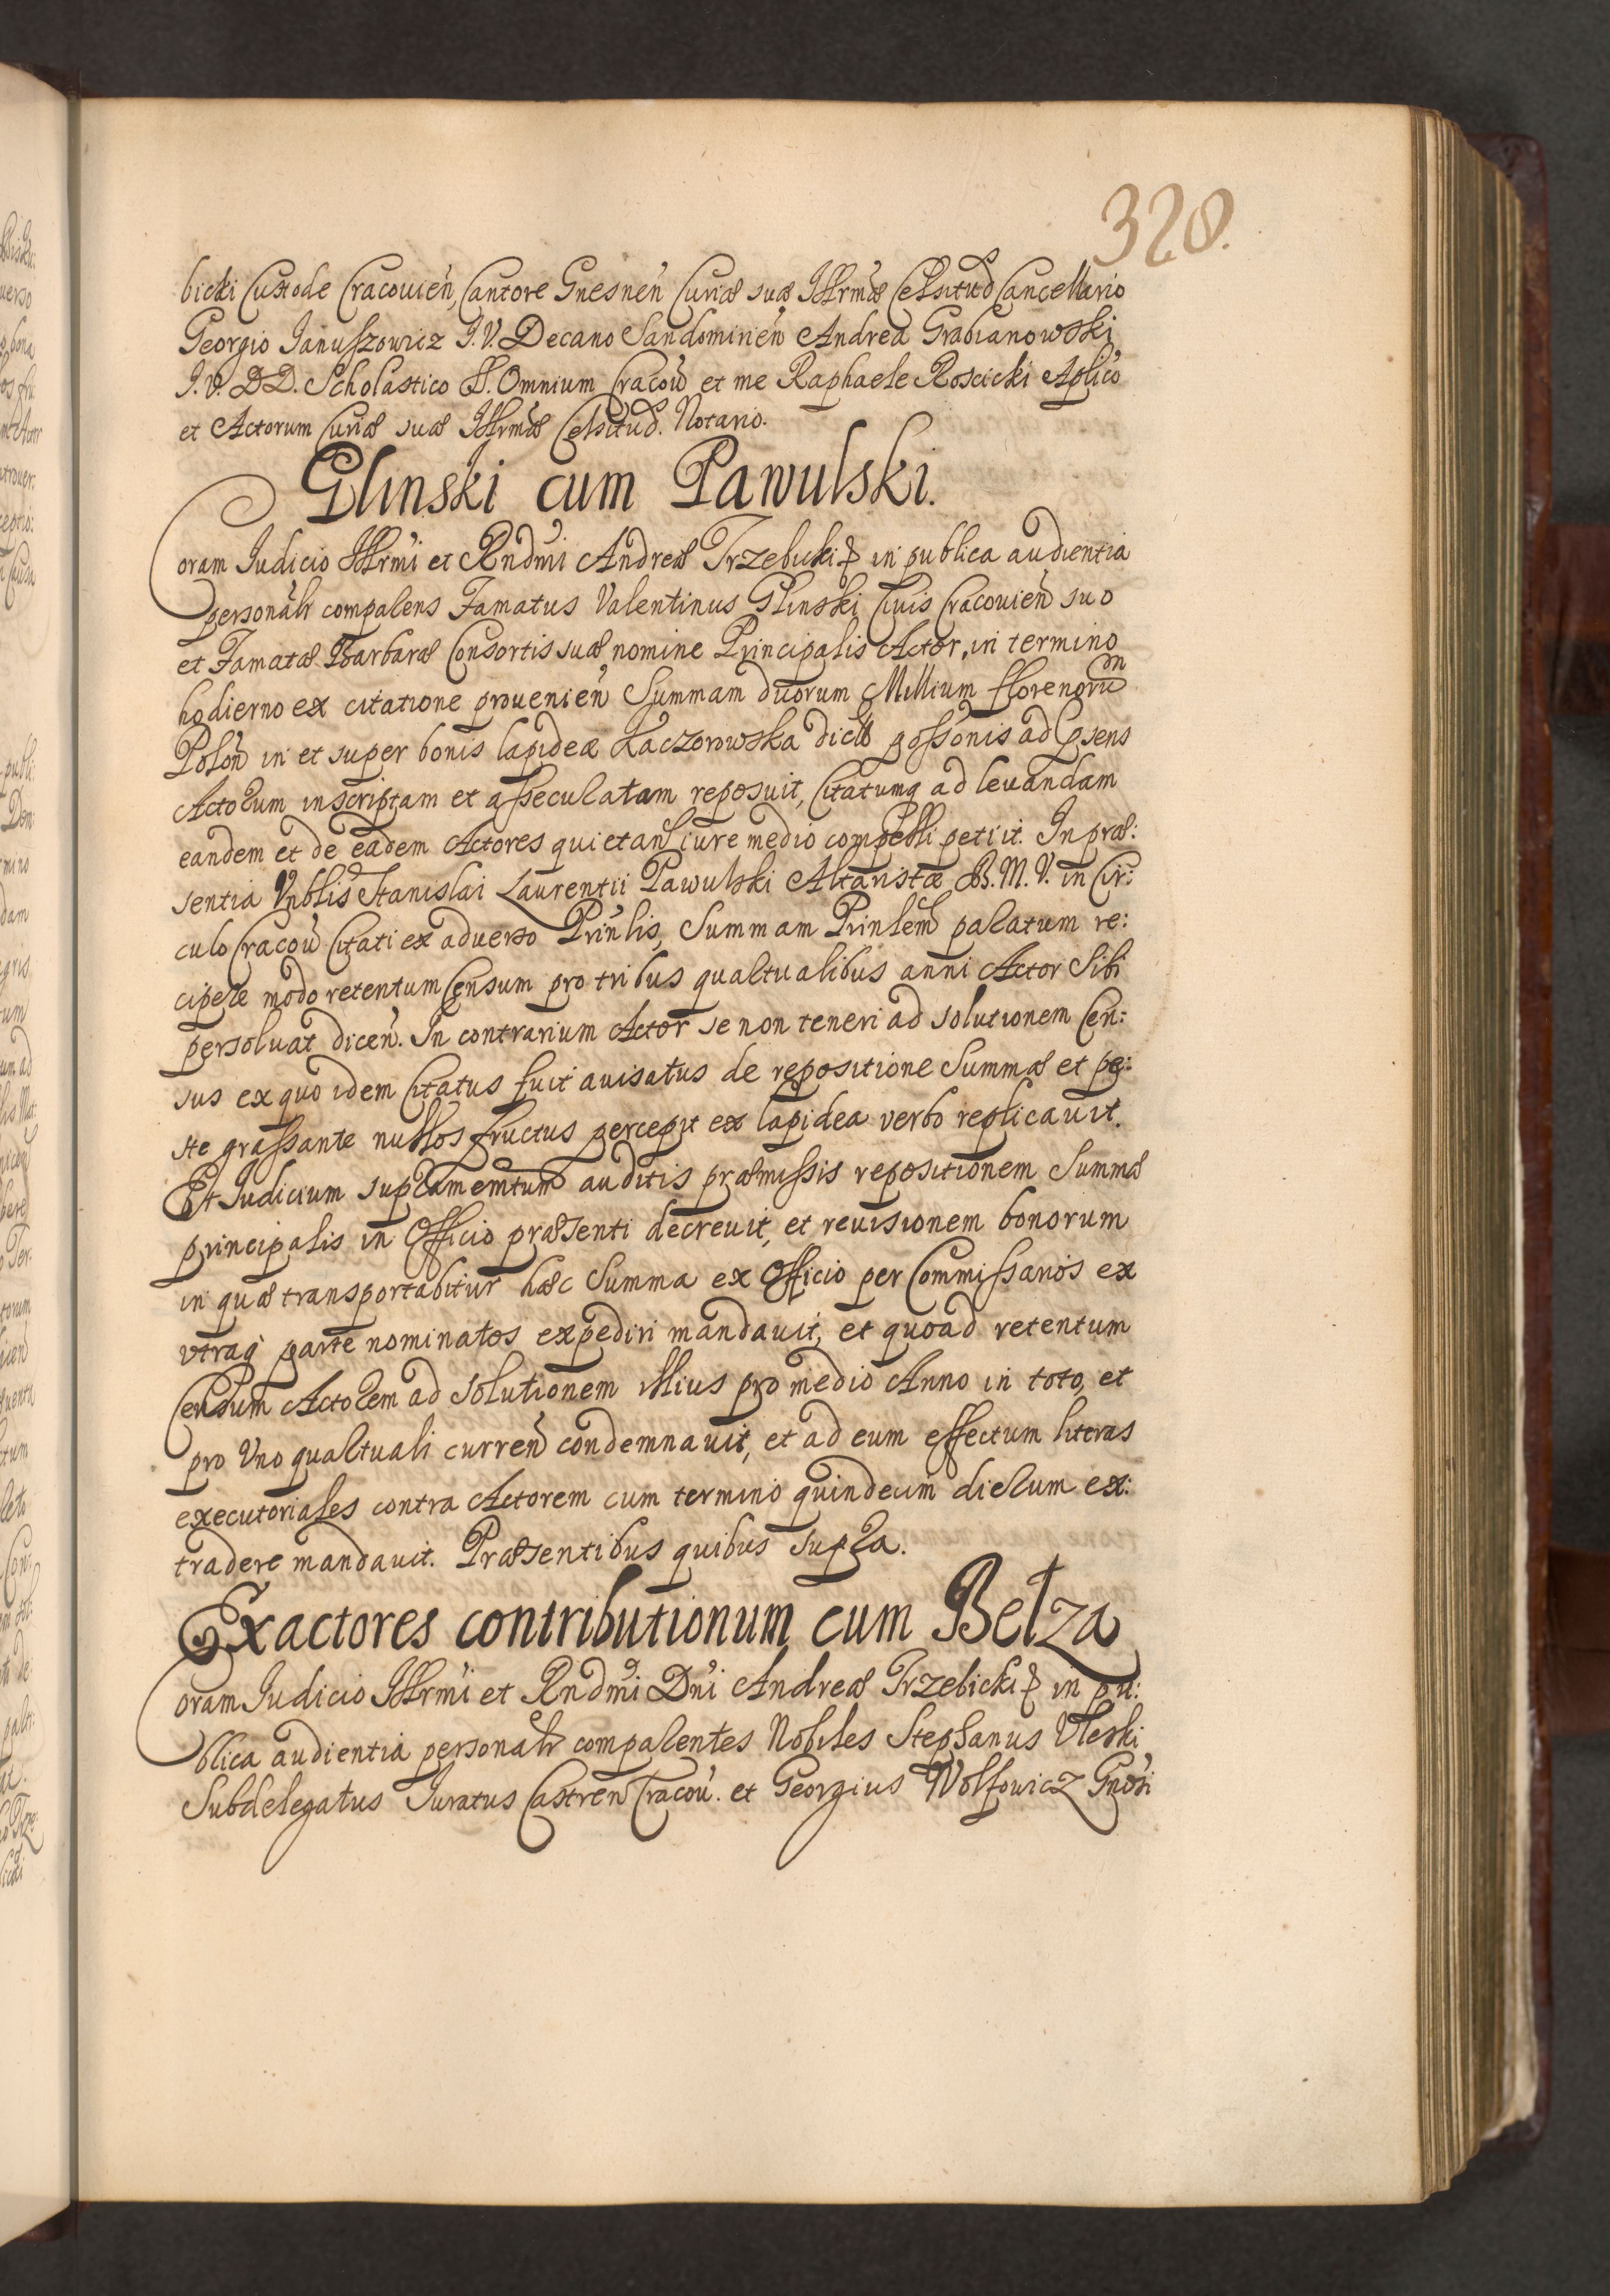 328.
bicki Custode Cracovień, Cantore Gnesneń Curiæ suæ Illrmæ Celsitud Cancellario
Georgio Janufszowicz J. V. Decano Sandomirień Andrea Grabianowski
J. V. DD. Scholastico SS. Omnium Cracou et me Raphaele Roscicki Aplico
et Actorum Curiæ suæ Illrmæ Celsitud. Notario.
Glinski cum Pawulski.
Coram Judicio Illrmi et Rndmi Andreæ Trzebicki & in publica audientia
personalr comparens Famatus Valentinus Glinski Civis Cracovień suo
et Famatæ Barbaræ Consortis suæ nomine Principalis Actor, in termino
hodierno ex citatione provenień Summam duorum Millium florenorum
Poloń in et super bonis lapideæ Kaczorowska dictæ possonis ad psens
Actorum inscriptam et asseculatam reposuit, Citatumq ad levandam
eandem et de eadem Actores quietand iure medio compelli petiit. In præ:
sentia Vnblis Stanislai Laurentii Pawulski Altaristæ B. M. V. in Cir:
culo Cracou Citati ex adverso Prinlis, Summam Prinlem paratum re:
cipere modo retentum Censum pro tribus quartualibus anni Actor Sibi
persoluat diceń. In contrarium Actor se non teneri ad solutionem Cen:
sus ex quo idem Citatus fuit avisatus de repositione Summæ et pe:
ste grassante nullos fructus percepit ex lapidea verbo replicavit.
Et Judicium supramemtum auditis præmissis repositionem Summæ
principalis in Officio præsenti decrevit, et revisionem bonorum
in quæ transportabitur hæc Summa ex Officio per Commissarios ex
vtraq parte nominatos expediri mandavit, et quoad retentum
Censum Actorem ad solutionem illius pro medio Anno in toto, et
pro Vno quartuali curreń condemnavit, et ad eum effectum literas
executoriales contra Actorem cum termino quindecim dierum ex:
tradere mandavit. Præsentibus quibus supra.
Exactores contributionum cum Belza
Coram Judicio Illrmi et Rndmi Dni Andreæ Trzebicki & in pu:
blica audientia personalr comparentes Nobiles Stephanus Vleski
Subdelegatus Juratus Castreń Cracou. et Georgius Wolfowicz Gnosi